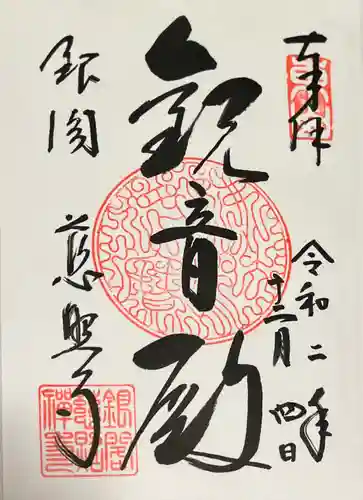 奉拝
令和二年
十二月四日
観音殿
銀閣
慈照寺